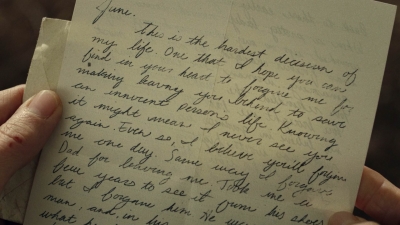 June,
This is the hardest decision of
my life. One that I hope you can
find in your heart to forgive me for
making leaving you behind to save
an innocent persons life. Knowing
it might mean I never see you
again. Even so, I believe you'll forgive
me one day. Same way I forgave
Dad for leaving me. Took me a
few years to see it from his shoes
but I forgave him. He was a
man, and, in his
what he